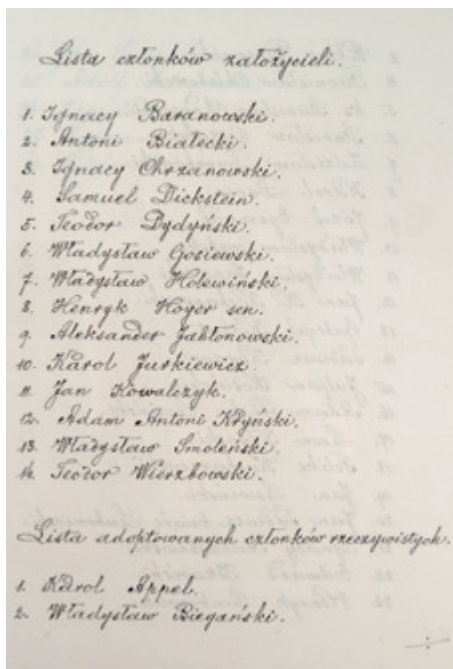 Lista członków założycieli.
1. Ignacy Baranowski.
2. Antoni Białecki.
3. Ignacy Chrzanowski.
4. Samuel Dickstein.
5. Teodor Dydyński.
6. Władysław Gosiewski.
7. Władysław Holewiński.
8. Henryk Hoyer sen.
9. Aleksander Jabłonowski.
10. Karol Jurkiewicz.
11. Jan Kowalczyk.
12. Adam Antoni Kryński.
13. Władysław Smoleński.
14. Teodor Wierzbowski.
Lista adoptowanych członków rzeczywistych.
1. Karol Appel.
2. Władysław Biegański.